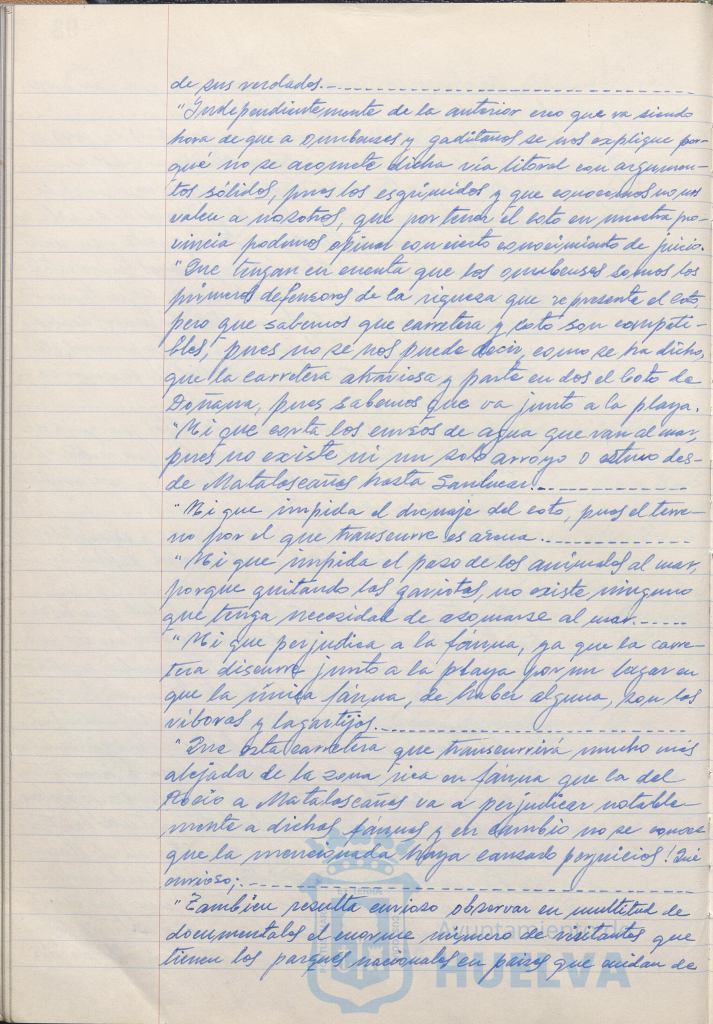 de sus verdades.-
"Independientemente de la anterior creo que va siendo
hora de que a onubenses y gaditanos se nos explique por-
qué no se acomete dicha vía litoral con argumen-
tos sólidos, pues los esgrimidos y que conocemos no nos
valen a nosotros, que por tener el coto en nuestra pro-
vincia podemos opinar con cierto conocimiento de juicio.
"Que tengan en cuenta que los onubenses somos los
primeros defensores de la riqueza que representa el coto,
pero que sabemos que carretera y coto son compati-
bles, pues no se nos puede decir, como se ha dicho,
que la carretera atraviesa y parte en dos el Coto de
Doñana, pues sabemos que va junto a la playa.
"Ni que corta los cursos de agua que van al mar,
pues no existe ni un solo arroyo o estero des-
de Matalascañas hasta Sanlucar.-
"Ni que impida el drenaje del coto, pues el terre-
no por el que transcurre es arena.-
"Ni que impida el paso de los animales al mar,
porque quitando las gaviotas, no existe ninguno
que tenga necesidad de asomarse al mar.-
"Ni que perjudica a la fáuna, ya que la carre-
tera discurre junto a la playa por un lugar en
que la única fáuna, de haber alguna, son las
víboras y lagartijos.-
"Que esta carretera que transcurrirá mucho más
alejada de la zona rica en fáuna que la del
Rocio a Matalascañas va a perjudicar notable-
mente a dichas fáunas y en cambio no se conoce
que la mencionada haya causado perjuicios! Qué
curioso;.-
"Tambien resulta curioso observar en multitud de
documentales el enorme número de visitantes que
tienen los parques nacionales en países que cuidan de
Ayuntamiento de
HUELVA